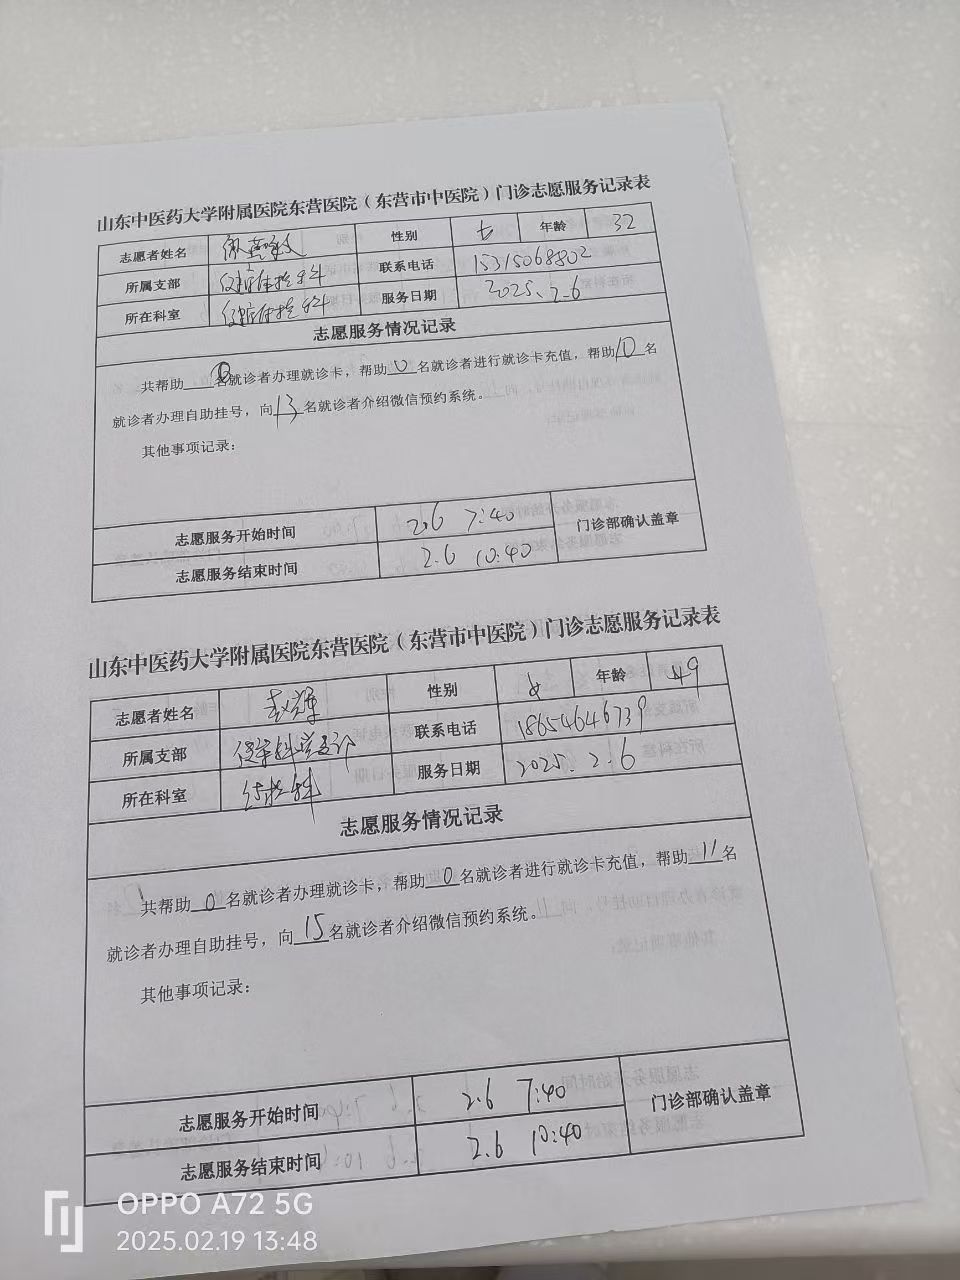 山东中医药大学附属医院东营医院（东营市中医院）门诊志愿服务记录表
志愿者姓名 性别 女 年龄 32
所属支部 健康体检科 联系电话 15315068802
所在科室 健康体检科 服务日期 2025.2.6
志愿服务情况记录
共帮助 0 名就诊者办理就诊卡，帮助 0 名就诊者进行就诊卡充值，帮助 10 名
就诊者办理自助挂号，向 13 名就诊者介绍微信预约系统。
其他事项记录：
志愿服务开始时间 2.6 7:40 门诊部确认盖章
志愿服务结束时间 2.6 10:40
山东中医药大学附属医院东营医院（东营市中医院）门诊志愿服务记录表
志愿者姓名 性别 女 年龄 49
所属支部 联系电话 18654646739
所在科室 服务日期 2025.2.6
志愿服务情况记录
共帮助 0 名就诊者办理就诊卡，帮助 0 名就诊者进行就诊卡充值，帮助 11 名
就诊者办理自助挂号，向 15 名就诊者介绍微信预约系统。
其他事项记录：
志愿服务开始时间 2.6 7:40 门诊部确认盖章
志愿服务结束时间 2.6 10:40
OPPO A72 5G
2025.02.19 13:48